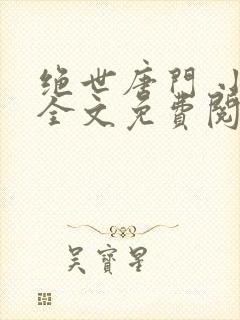 绝世唐門小
全文免費閱
吳寶星